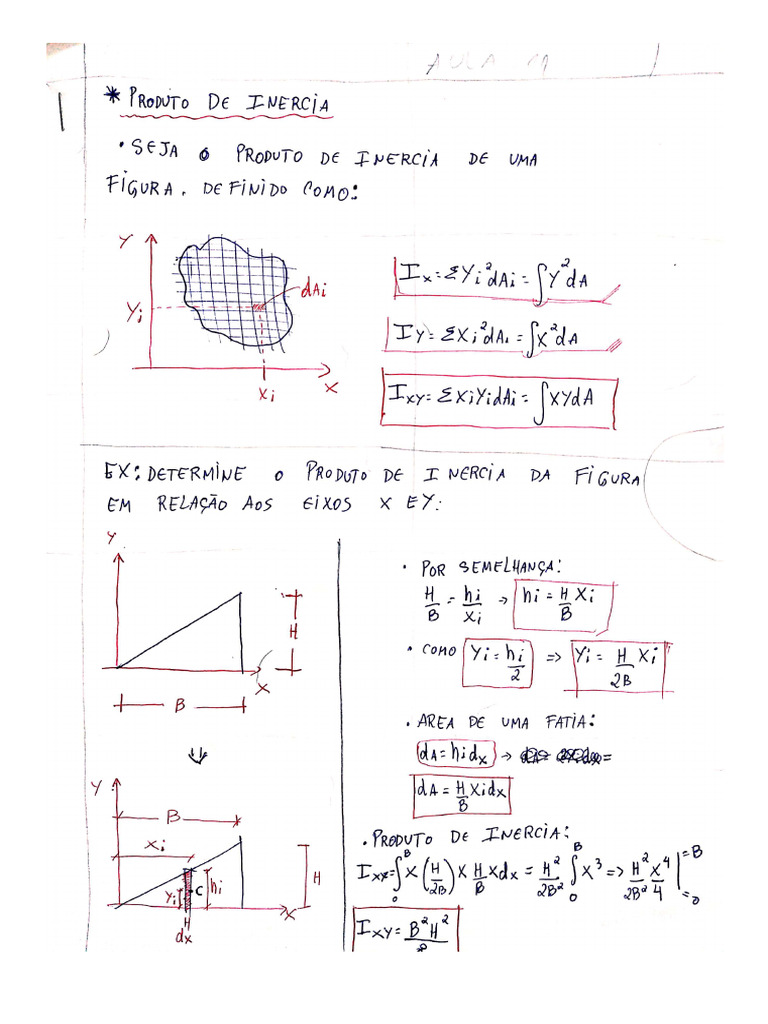 AULA 19
1
* PRODUTO DE INERCIA
• SEJA O PRODUTO DE INERCIA DE UMA
FIGURA, DEFINIDO COMO:
Y
dAi
Yi
Xi
X
Ix = ΣYi²dAi = ∫Y²dA
IY = ΣXi²dAi = ∫X²dA
IXY = ΣXiYidAi = ∫XYdA
EX: DETERMINE O PRODUTO DE INERCIA DA FIGURA
EM RELAÇÃO AOS EIXOS X E Y:
Y
H
X
B
Y
B
Xi
H
Yi
C
hi
X
dx
• POR SEMELHANÇA:
H/B = hi/Xi → hi = H/B Xi
• COMO Yi = hi/2 ⇒ Yi = H/2B Xi
• AREA DE UMA FATIA:
dA = hidx →
dA = H/B Xidx
• PRODUTO DE INERCIA:
Ixy = ∫₀ᴮ X (H/2B) X H/B X dx = H²/2B² ∫₀ᴮ X³ ⇒ H²/2B² X⁴/4 |=B =0
IXY = B²H²/8